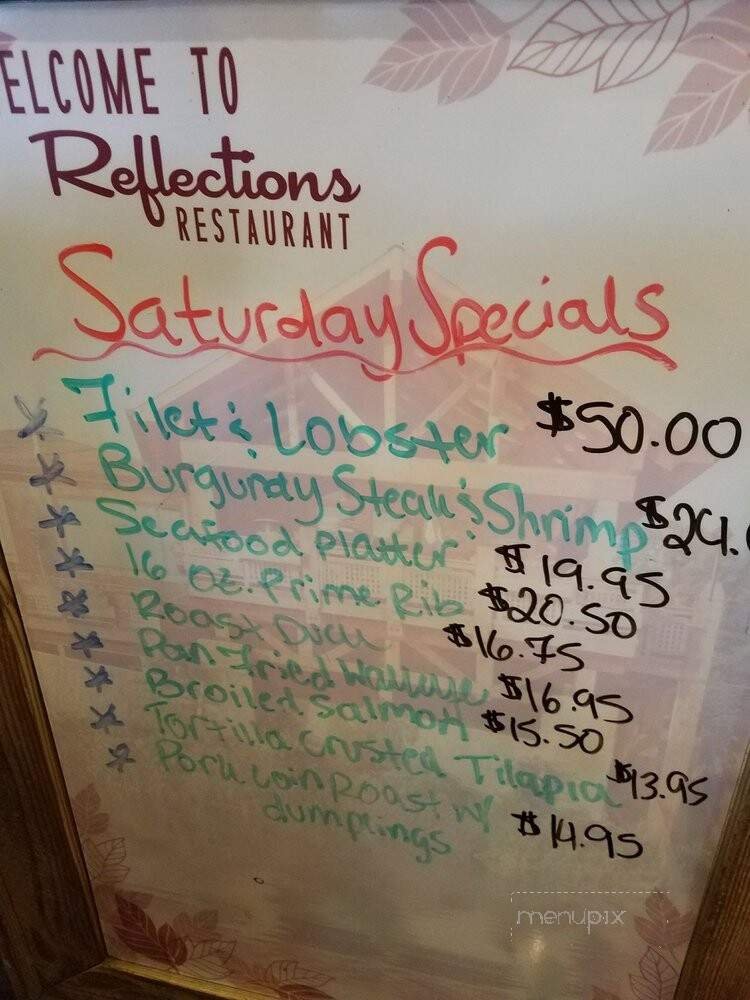 ELCOME TO
Reflections
RESTAURANT
Saturday Specials
* Filet & Lobster $50.00
* Burgundy Steak & Shrimp $24.
* Seafood Platter $19.95
* 16 oz. Prime Rib $20.50
* Roast Duck $16.75
* Pan Fried Walleye $16.95
* Broiled Salmon $15.50
* Tortilla Crusted Tilapia $13.95
* Pork Loin Roast w/ $14.95
dumplings
menupix